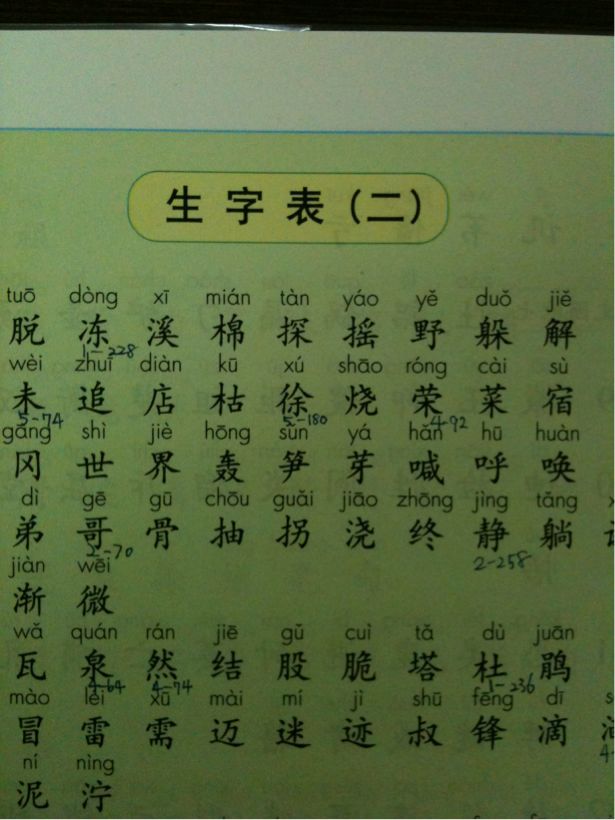 生字表（二）
tuō dòng xī mián tàn yáo yě duǒ jiě
脱 冻 溪 棉 探 摇 野 躲 解
1-228
wèi zhuī diàn kū xú shāo róng cài sù
未 追 店 枯 徐 烧 荣 菜 宿
5-74 5-180 4-92
gāng shì jiè hōng sǔn yá hǎn hū huàn
冈 世 界 轰 笋 芽 喊 呼 唤
dì gē gǔ chōu guǎi jiāo zhōng jìng tǎng
弟 哥 骨 抽 拐 浇 终 静 躺
2-70 2-258
jiàn wēi
渐 微
wǎ quán rán jiē gǔ cuì tǎ dù juān
瓦 泉 然 结 股 脆 塔 杜 鹃
4-64 4-74 1-236
mào léi xū mài mí jì shū fēng dī
冒 雷 需 迈 迷 迹 叔 锋 滴
ní nìng
泥 泞